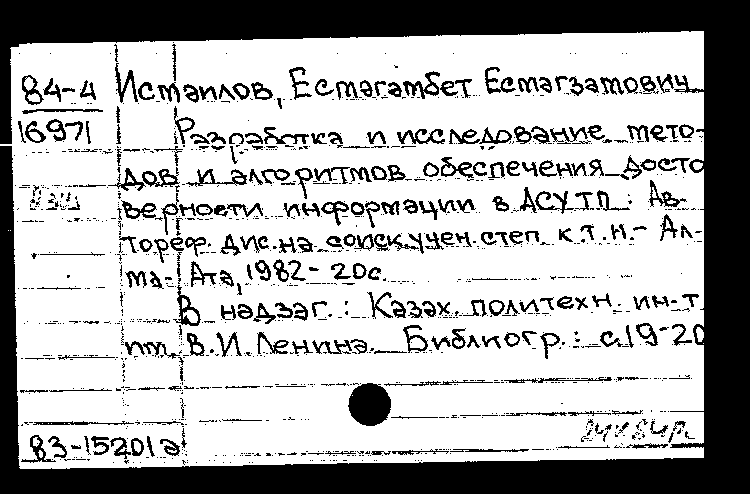 84-4 Исмаилов, Есмагамбет Есмагзамович
16971 Разработка и исследование мето-
дов и алгоритмов обеспечения досто
верности информации в АСУТП : Ав-
тореф. дис. на соиск. учен. степ. к.т.н. - Ал-
ма-Ата, 1982 - 20с.
В надзаг.: Казах. политехн. ин-т
им. В.И. Ленина. Библиогр.: с.19-20
83-15201а